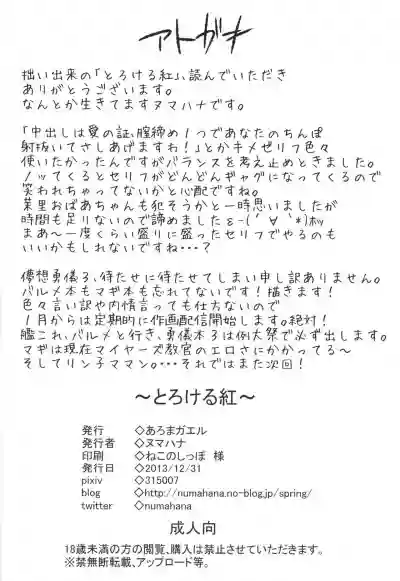 アトガキ
拙い出来の「とろける紅」、読んでいただき
ありがとうございます。
なんとか生きてますヌマハナです。
「中出しは愛の証、膣締め1つであなたのちんぽ
射抜いてさしあげますわ!」とかキメゼリフ色々
使いたかったんですがバランスを考え止めときました。
ノッてくるとセリフがどんどんギャグになってくるので
笑われちゃってないかと心配ですね。
菜里おばあちゃんも犯そうかと一時思いましたが
時間も足りないので諦めましたε-(´∀｀*)ホッ
まあ〜一度くらい盛りに盛ったセリフでやるのも
いいかもしれないですね・・・?
儚想勇儀3、待たせに待たせてしまい申し訳ありません。
パルメ本もマギ本も忘れてないです!描きます!
色々言い訳や内情言っても仕方ないので
1月からは定期的に作画配信開始します。絶対!
艦これ、パルメと行き、勇儀本3は例大祭で必ず出します。
マギは現在マイヤーズ教官のエロさにかかってる〜
そしてリン子ママン。・・・それではまた次回!
〜とろける紅〜
発行 ◇あろまガエル
発行者 ◇ヌマハナ
印刷 ◇ねこのしっぽ 様
発行日 ◇2013/12/31
pixiv ◇315007
blog ◇http://numahana.no-blog.jp/spring/
twitter ◇numahana
成人向
18歳未満の方の閲覧、購入は禁止させていただきます。
※禁無断転載、アップロード等。